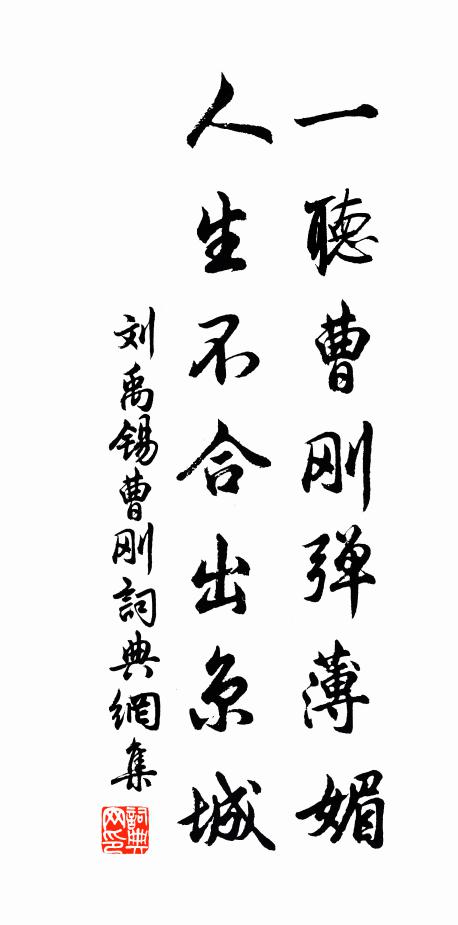 一聴曹刚弹薄媚
人生不合出京城
刘禹锡曹刚詞典網集
詞典网印